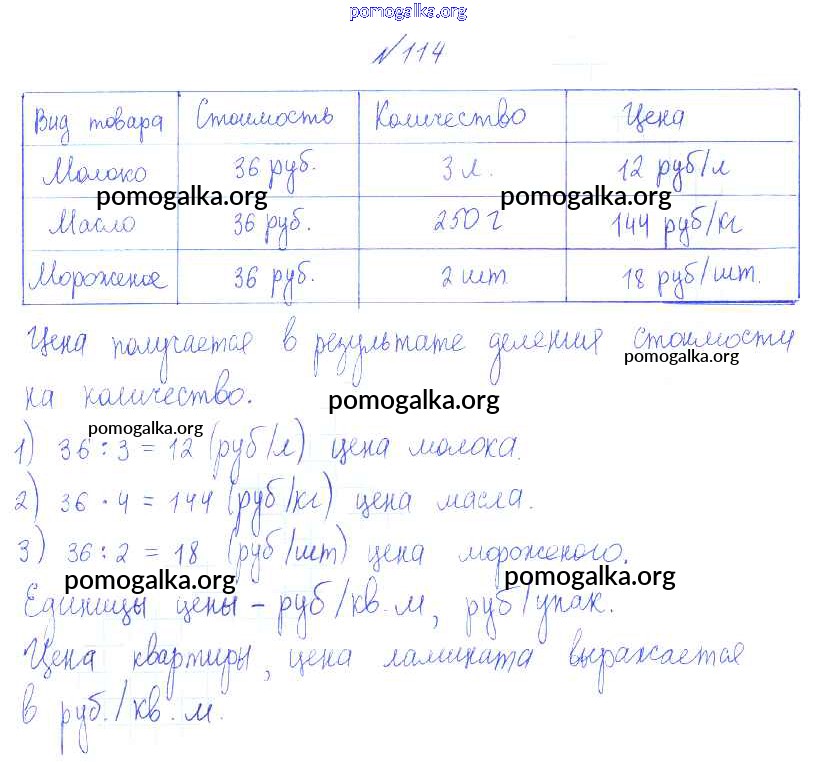 pomogalka.org
№114
Вид товара Стоимость Количество Цена
Молоко 36 руб. 3 л. 12 руб/л
pomogalka.org pomogalka.org
Масло 36 руб. 250 г 144 руб/кг
Мороженое 36 руб. 2 шт 18 руб/шт.
Цена получается в результате деления стоимости
pomogalka.org
на количество.
pomogalka.org
pomogalka.org
1) 36 : 3 = 12 (руб/л) цена молока.
2) 36 · 4 = 144 (руб/кг) цена масла.
3) 36 : 2 = 18 (руб/шт) цена мороженого.
pomogalka.org pomogalka.org
Единицы цены – руб/кв. м, руб/упак.
Цена квартиры, цена ламината выражается
в руб./кв. м.